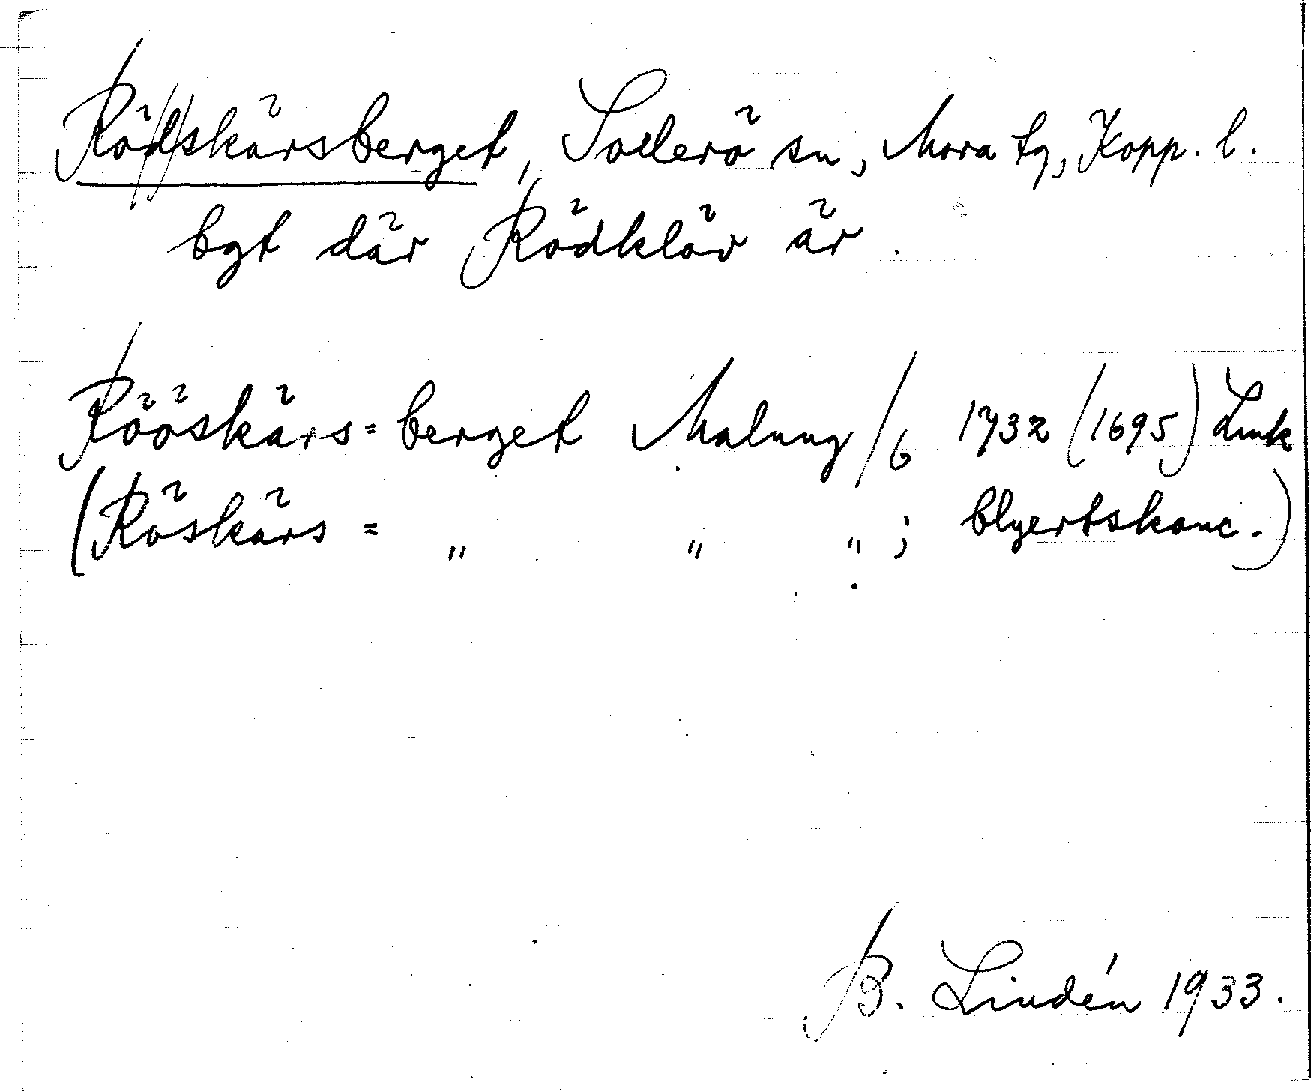 Rödskärsberget, Sollerö sn, Mora tg, Kopp. l.
bgt där Rödklöv är.
Rööskärs=berget Malung /6 1732 (1695) Lmk
(Röskärs= " " " ; blyertskonc.)
B. Lindén 1933.